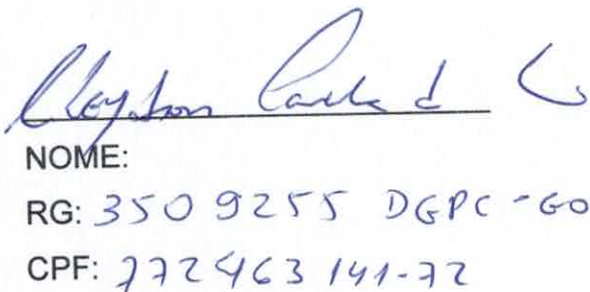 Cleydson Carlos d
NOME:
RG: 3509255 DGPC-GO
CPF: 772463141-72